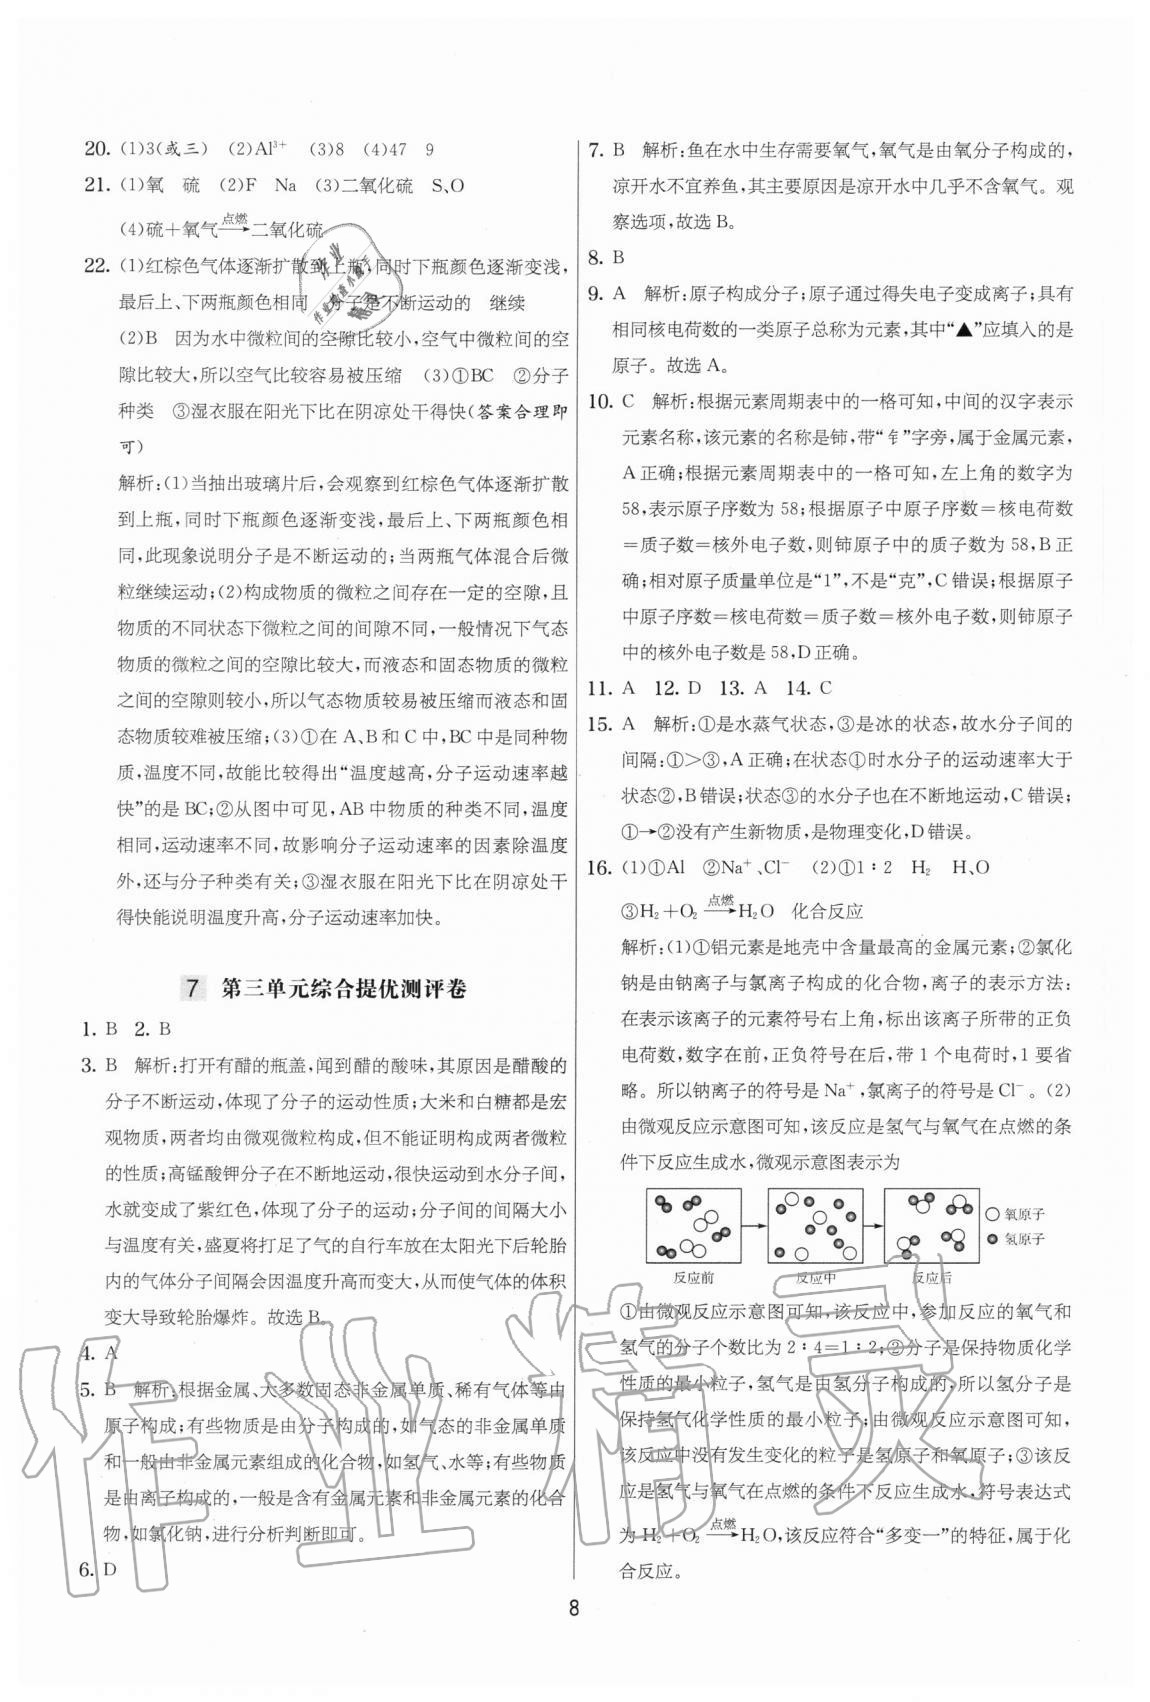 20. (1)3(或三) (2)Al³⁺ (3)8 (4)47 9
21. (1)氧 硫 (2)F Na (3)二氧化硫 S、O
(4)硫＋氧气 点燃→ 二氧化硫
22. (1)红棕色气体逐渐扩散到上瓶,同时下瓶颜色逐渐变浅,
最后上、下两瓶颜色相同 分子是不断运动的 继续
(2)B 因为水中微粒间的空隙比较小,空气中微粒间的空
隙比较大,所以空气比较容易被压缩 (3)①BC ②分子
种类 ③湿衣服在阳光下比在阴凉处干得快(答案合理即
可)
解析:(1)当抽出玻璃片后,会观察到红棕色气体逐渐扩散
到上瓶,同时下瓶颜色逐渐变浅,最后上、下两瓶颜色相
同,此现象说明分子是不断运动的;当两瓶气体混合后微
粒继续运动;(2)构成物质的微粒之间存在一定的空隙,且
物质的不同状态下微粒之间的间隙不同,一般情况下气态
物质的微粒之间的空隙比较大,而液态和固态物质的微粒
之间的空隙则较小,所以气态物质较易被压缩而液态和固
态物质较难被压缩;(3)①在 A、B 和 C 中,BC 中是同种物
质,温度不同,故能比较得出“温度越高,分子运动速率越
快”的是 BC;②从图中可见,AB 中物质的种类不同,温度
相同,运动速率不同,故影响分子运动速率的因素除温度
外,还与分子种类有关;③湿衣服在阳光下比在阴凉处干
得快能说明温度升高,分子运动速率加快。
7 第三单元综合提优测评卷
1. B 2. B
3. B 解析:打开有醋的瓶盖,闻到醋的酸味,其原因是醋酸的
分子不断运动,体现了分子的运动性质;大米和白糖都是宏
观物质,两者均由微观微粒构成,但不能证明构成两者微粒
的性质;高锰酸钾分子在不断地运动,很快运动到水分子间,
水就变成了紫红色,体现了分子的运动;分子间的间隔大小
与温度有关,盛夏将打足了气的自行车放在太阳光下后轮胎
内的气体分子间隔会因温度升高而变大,从而使气体的体积
变大导致轮胎爆炸。故选 B。
4. A
5. B 解析:根据金属、大多数固态非金属单质、稀有气体等由
原子构成;有些物质是由分子构成的,如气态的非金属单质
和一般由非金属元素组成的化合物,如氢气、水等;有些物质
是由离子构成的,一般是含有金属元素和非金属元素的化合
物,如氯化钠,进行分析判断即可。
6. D
7. B 解析:鱼在水中生存需要氧气,氧气是由氧分子构成的,
凉开水不宜养鱼,其主要原因是凉开水中几乎不含氧气。观
察选项,故选 B。
8. B
9. A 解析:原子构成分子;原子通过得失电子变成离子;具有
相同核电荷数的一类原子总称为元素,其中“▲”应填入的是
原子。故选 A。
10. C 解析:根据元素周期表中的一格可知,中间的汉字表示
元素名称,该元素的名称是铈,带“钅”字旁,属于金属元素,
A 正确;根据元素周期表中的一格可知,左上角的数字为
58,表示原子序数为 58;根据原子中原子序数＝核电荷数
＝质子数＝核外电子数,则铈原子中的质子数为 58,B 正
确;相对原子质量单位是“1”,不是“克”,C 错误;根据原子
中原子序数＝核电荷数＝质子数＝核外电子数,则铈原子
中的核外电子数是 58,D 正确。
11. A 12. D 13. A 14. C
15. A 解析:①是水蒸气状态,③是冰的状态,故水分子间的
间隔:①＞③,A 正确;在状态①时水分子的运动速率大于
状态②,B 错误;状态③的水分子也在不断地运动,C 错误;
①→②没有产生新物质,是物理变化,D 错误。
16. (1)①Al ②Na⁺、Cl⁻ (2)①1∶2 H₂ H、O
③H₂＋O₂ 点燃→ H₂O 化合反应
解析:(1)①铝元素是地壳中含量最高的金属元素;②氯化
钠是由钠离子与氯离子构成的化合物,离子的表示方法:
在表示该离子的元素符号右上角,标出该离子所带的正负
电荷数,数字在前,正负符号在后,带 1 个电荷时,1 要省
略。所以钠离子的符号是 Na⁺,氯离子的符号是 Cl⁻。(2)
由微观反应示意图可知,该反应是氢气与氧气在点燃的条
件下反应生成水,微观示意图表示为
氧原子
氢原子
反应前 反应中 反应后
①由微观反应示意图可知,该反应中,参加反应的氧气和
氢气的分子个数比为 2∶4＝1∶2;②分子是保持物质化学
性质的最小粒子,氢气是由氢分子构成的,所以氢分子是
保持氢气化学性质的最小粒子;由微观反应示意图可知,
该反应中没有发生变化的粒子是氢原子和氧原子;③该反
应是氢气与氧气在点燃的条件下反应生成水,符号表达式
为 H₂＋O₂ 点燃→ H₂O,该反应符合“多变一”的特征,属于化
合反应。
8
作业精灵